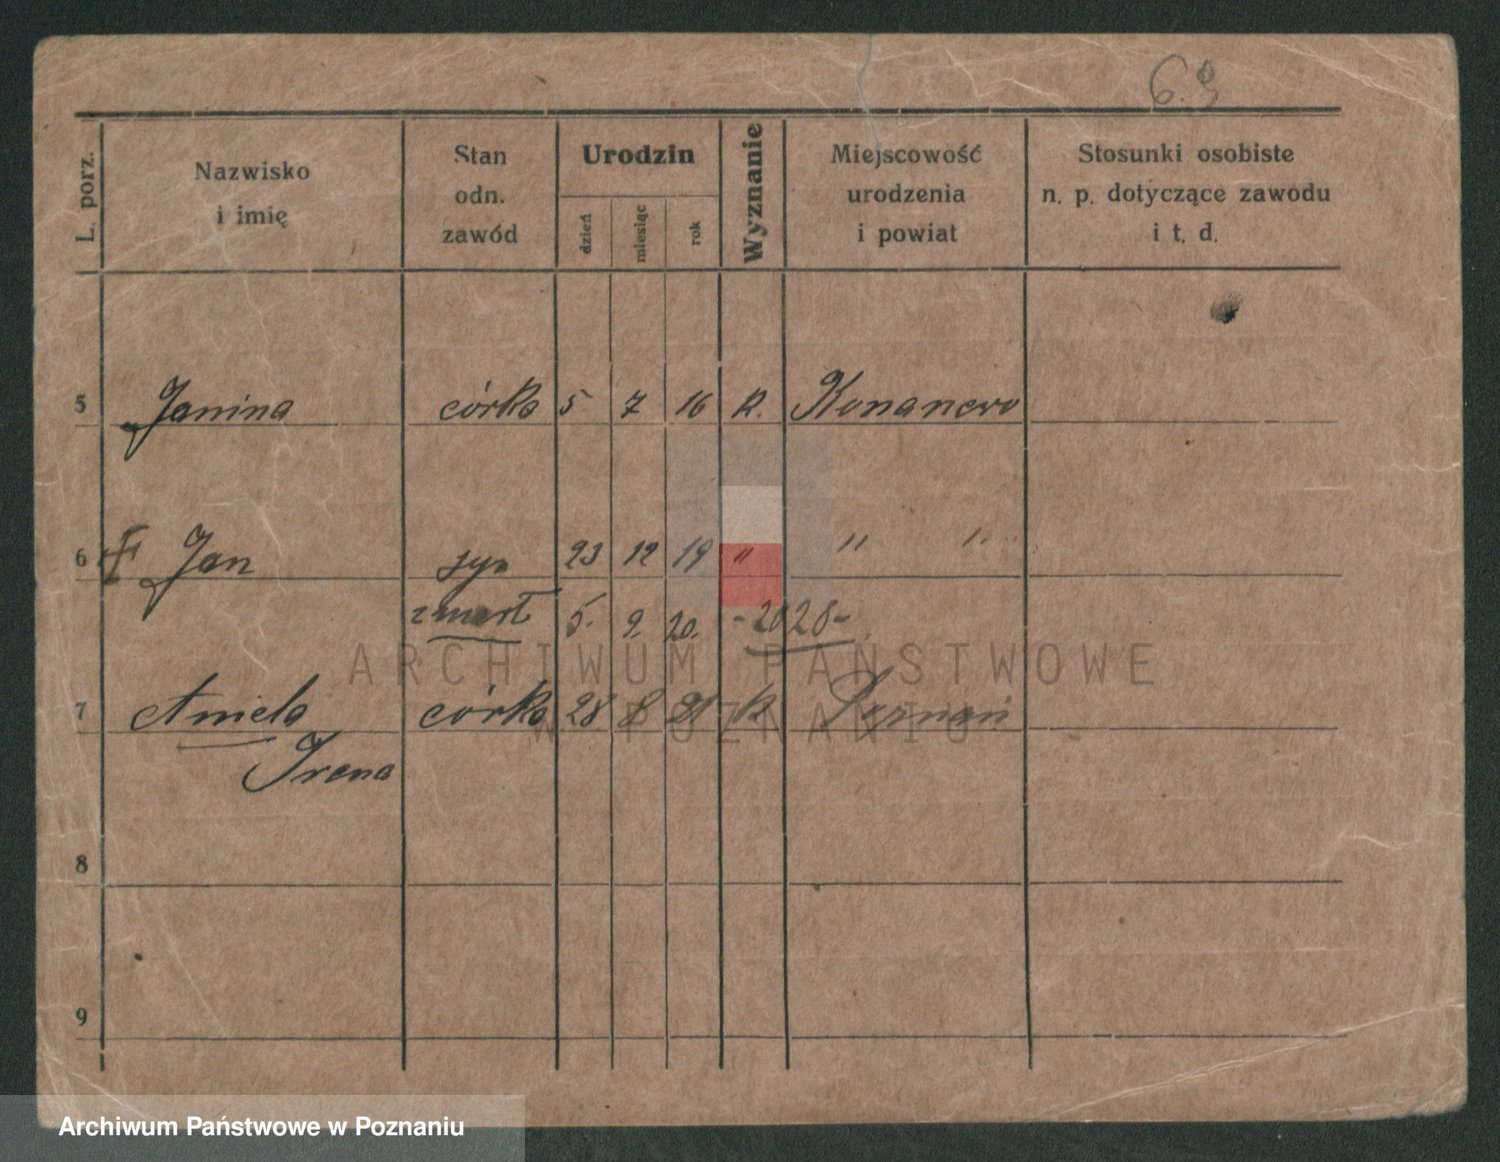 6.9
L. porz. Nazwisko i imię Stan odn. zawód Urodzin dzień miesiąc rok Wyznanie Miejscowość urodzenia i powiat Stosunki osobiste n. p. dotyczące zawodu i t. d.
5 Janina córka 5 7 16 k. Konanewo
6 Jan syn 23 12 19 " " "
zmarł 5. 9. 20. -2028-
7 Aniela córka 28 8 21 k. Poznań
Irena
8
9
ARCHIWUM PAŃSTWOWE
W POZNANIU
Archiwum Państwowe w Poznaniu